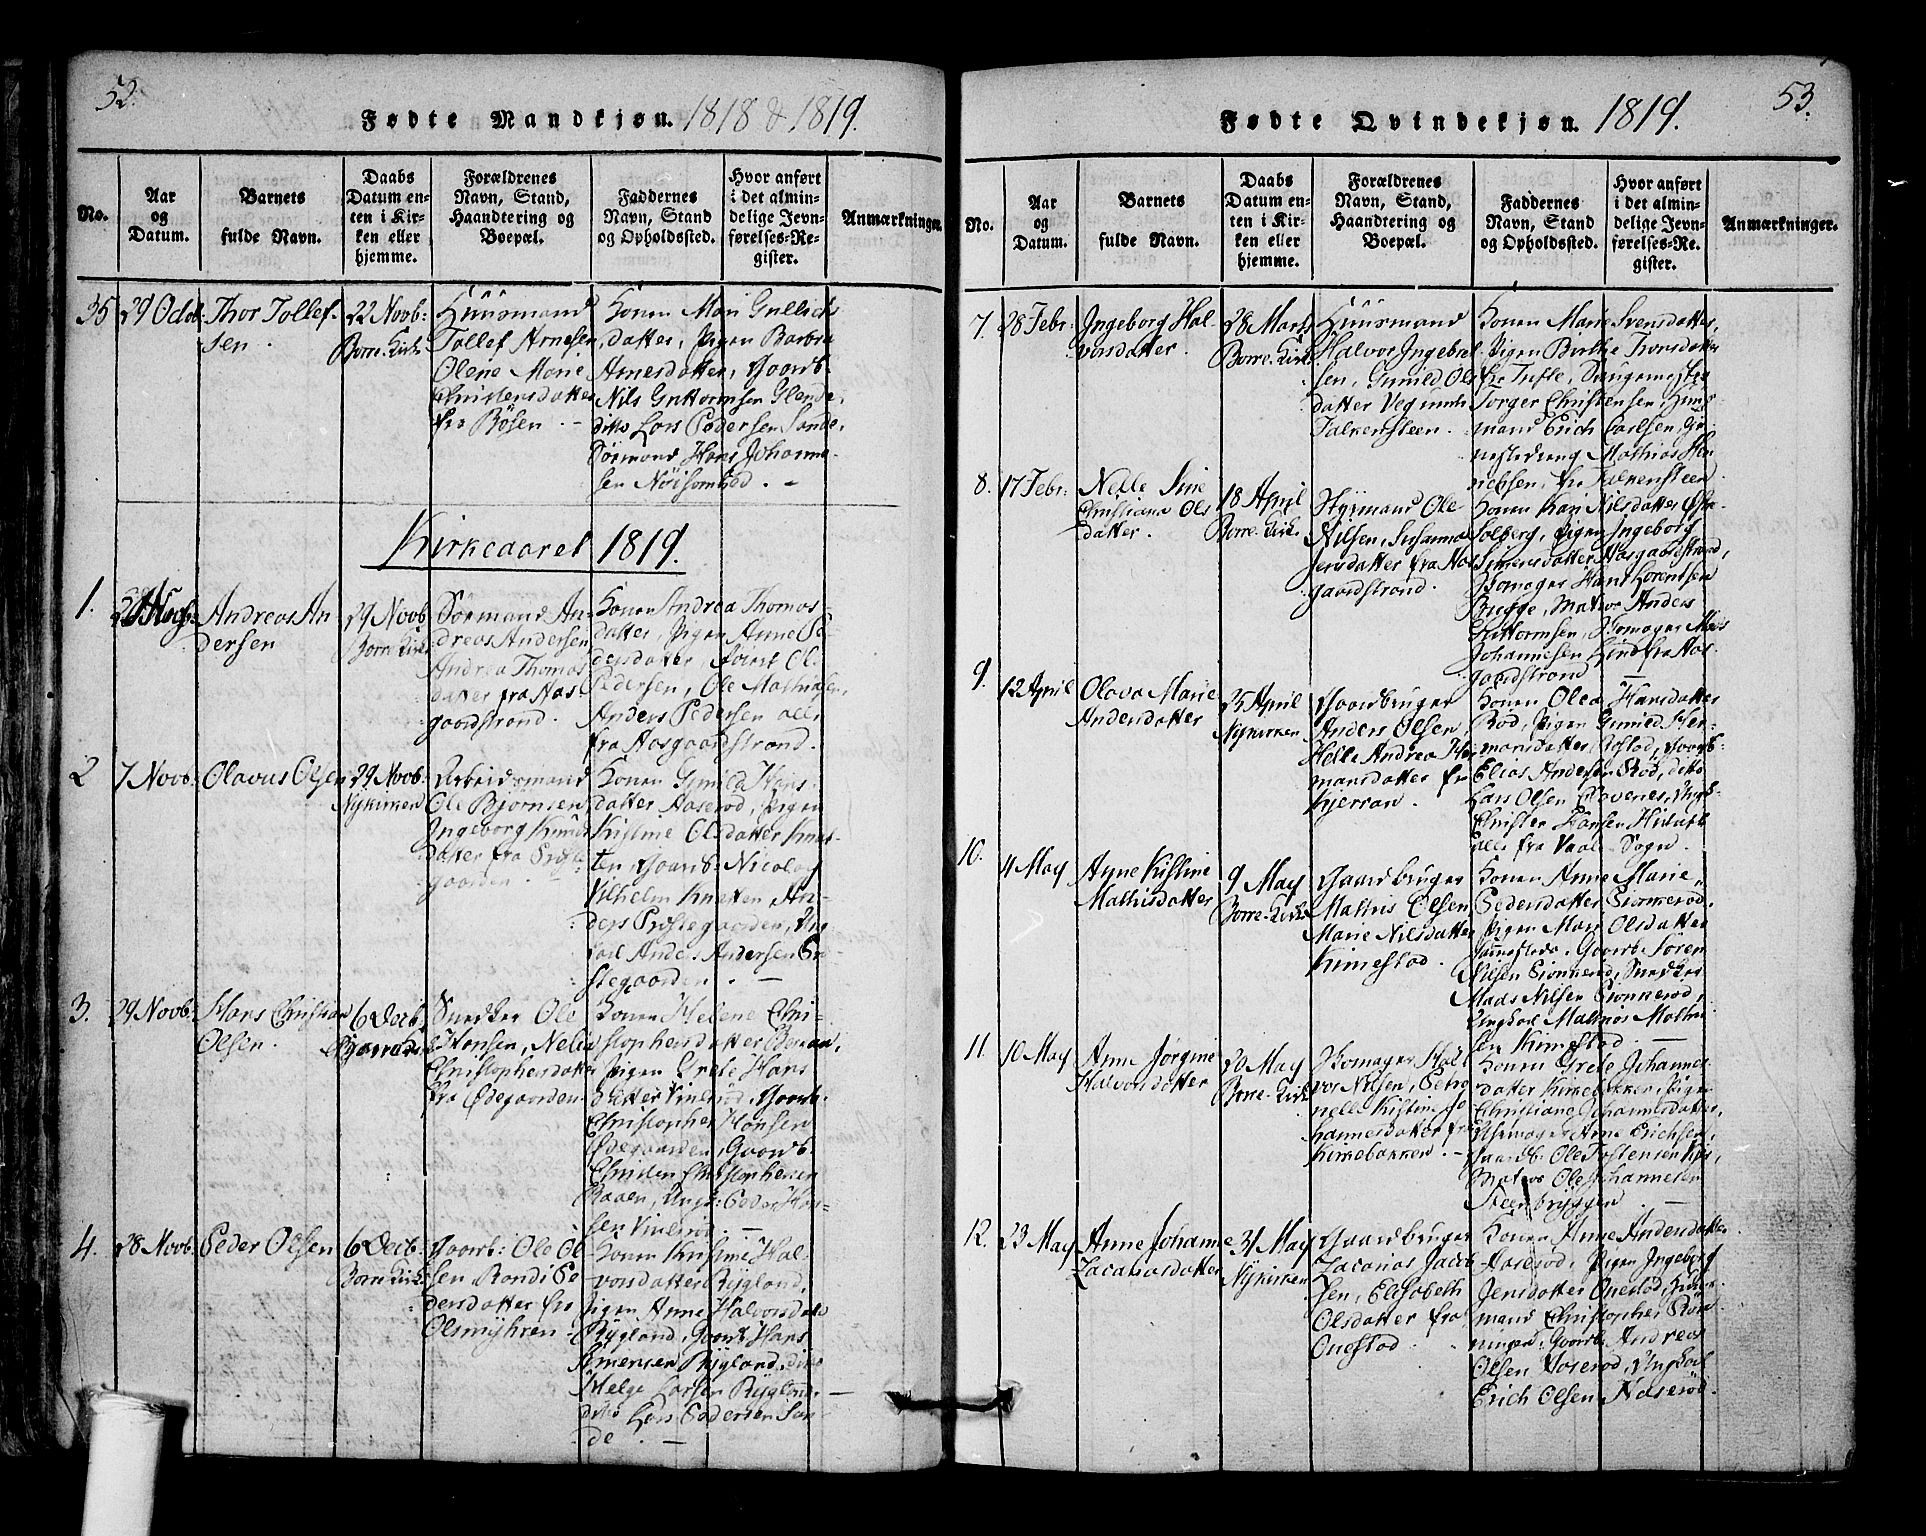 52.
Fødte Mandkjøn. 1818 & 1819.
No.
Aar
og
Datum.
Barnets
fulde Navn.
Daabs
Datum en-
ten i Kir-
ken eller
hjemme.
Forældrenes
Navn, Stand,
Haandtering og
Boepæl.
Faddernes
Navn, Stand
og Opholdssted.
Hvor anført
i det almin-
delige Jevn-
førelses-Re-
gister.
Anmærkninger.
35
29 Octob:
Thor Tollef-
sen.
22 Novb:
Borre-Kirke
Huusmand
Tollef Arnesen
Olene Marie
Christensdatter
fra Røsen. -
Konen Mari Gullichs
datter, Pigen Barbra
Arnesdatter, Gaardb.
Nils Guttormsen Glende,
ditto Lars Pedersen Sande,
Sørmand Hans Johanne-
sen
Kirkeaaret 1819.
1.
Andreas An
dersen
29 Novb
Borre Kirke
Sørmand An-
dreas Andersen
Andrea Thomas
datter fra Aas
gaardstrand.
Konen Andrea Thomas-
datter, Pigen Anne Pe-
dersdatter, Ole
Pedersen, Ole Mathiasen,
Anders Pedersen alle
fra Aasgaardstrand.
2
7 Novb:
Olavus Olsen
29 Novb:
Nykirken
Arbeidsmand
Ole Bjørnsen
Ingeborg Knuds
datter fra Præste
gaarden. -
Konen Gunild Hans
datter Aaserød, Pigen
Kristine Olsdatter Knat-
ten, Gaardb: Nicolay
Vilhelm Knatten, An-
ders Præstegaarden, Ung
karl Ande. Andersen Præ-
stegaarden. -
3.
29 Novb:
Hans Christian
Olsen.
6 Decb.
Snedker Ole
Hansen, Nelia
Christophersdatter
fra Ødegaarden.
Konen Helene Chri-
stophersdatter
Pigen Grete Hans
datter Vinlrud, Gaardb.
Christopher Hansen
Ødegaarden, Gaardb.
Christen Christophersen
Raaen, Ungk: Peder Han-
sen Vinlrud. -
4.
28 Novb:
Peder Olsen
6 Decb
Borre Kirk.
Gaarb: Ole Ol-
sen Randi Pe-
dersdatter fra
Olsmyhren.
Konen Kristine Hal-
vorsdatter Rygland,
Pigen Anne Halvorsdatr
Rygland, Gaardb Hans
Simensen Rygland, ditto
Helge Larsen Rygland,
ditto Lars Pedersen San-
de. -
53.
Fødte Qvindekjøn. 1819.
No.
Aar
og
Datum.
Barnets
fulde Navn.
Daabs
Datum en-
ten i Kir-
ken eller
hjemme.
Forældrenes
Navn, Stand,
Haandtering og
Boepæl.
Faddernes
Navn, Stand
og Opholdssted.
Hvor anført
i det almin-
delige Jevn-
førelses-Re-
gister.
Anmærkninger.
7.
28 Febr:
Ingeborg Hal-
vorsdatter.
28 Marts
Borre-Kirk.
Huusmand
Halvor Ingebret
sen, Gunild Ols
datter Veg under
Falkensteen.
Konen Marie Svensdatter,
Pigen Birthe Thorsdatter
fra Tufte,
Torger Christensen, Huus
mand Erich Carlsen,
Mathias Hen
richsen, fra Falkensteen
8.
17 Febr:
Nelle Sine
Christiana Ols
datter.
18 April
Borre-Kirk.
Styrmand Ole
Nilsen, Susanna
Jensdatter fra Aas
gaardstrand.
Konen Kari Nilsdatter
Solberg, Pigen Ingeborg
Simensdatter Aasgaardstrand,
Skomager Hans Lorentsen
Brygge, Matros Anders
Guttormsen, Skomager Mads
Johannesen Lind fra Aas-
gaardstrand -
9.
12 April
Olava Marie
Andersdatter
25 April
Nykirken
Gaardbruger
Anders Olsen,
Helle Andrea Her
mansdatter fra
Kjerran.
Konen Olea Hansdatter
Rød, Pigen Gunild Her-
mansdatter, Gaarb.
Elias Andersen Rød, ditto
Lars Olsen Clavenes, Ungk.
Christer Hansen
alle fra Vaale-Sogn.
10.
4 May
Anne Kistine
Mathisdatter
9 May
Borre-Kirk
Gaardbruger
Mathis Olsen
Marie Nilsdatter
Kimestad.
Konen Anne Marie
Pedersdatter Sionnerød,
Pigen Mari Olsdatter
Gaarb: Søren
Nilsen Sionnerød, Snedker
Mads Nilsen Sionnerød,
Ungkarl Mathias Mathi-
sen Kimestad -
11.
10 May
Anne Jørgine
Halvorsdatter
20 May
Borre-Kirk
Skomager Hal-
vor Nilsen, Petro
nelle Kistine Jo
hannesdatter fra
Kirkebakken. -
Konen Grete Johannes-
datter Kirkebakken, Pigen
Christiane Johannesdatter,
Arne Erichsen,
Gaardb: Ole Tostensen
Matros Ole Johannesen
Steenbryggen -
12.
23 May
Anne Johanne
Zacariasdatter
31 May
Nykirken
Gaardbruger
Zacarias Jacob
sen, Elisabeth
Olsdatter fra
Onestad.
Konen Anne Andersdatter
Aaserød, Pigen Ingeborg
Jensdatter Onestad, Huus-
mand Christopher Røn-
ningen, Gaarb: Andreas
Olsen Aaserød, Ungkarl
Erich Olsen Aaserød.